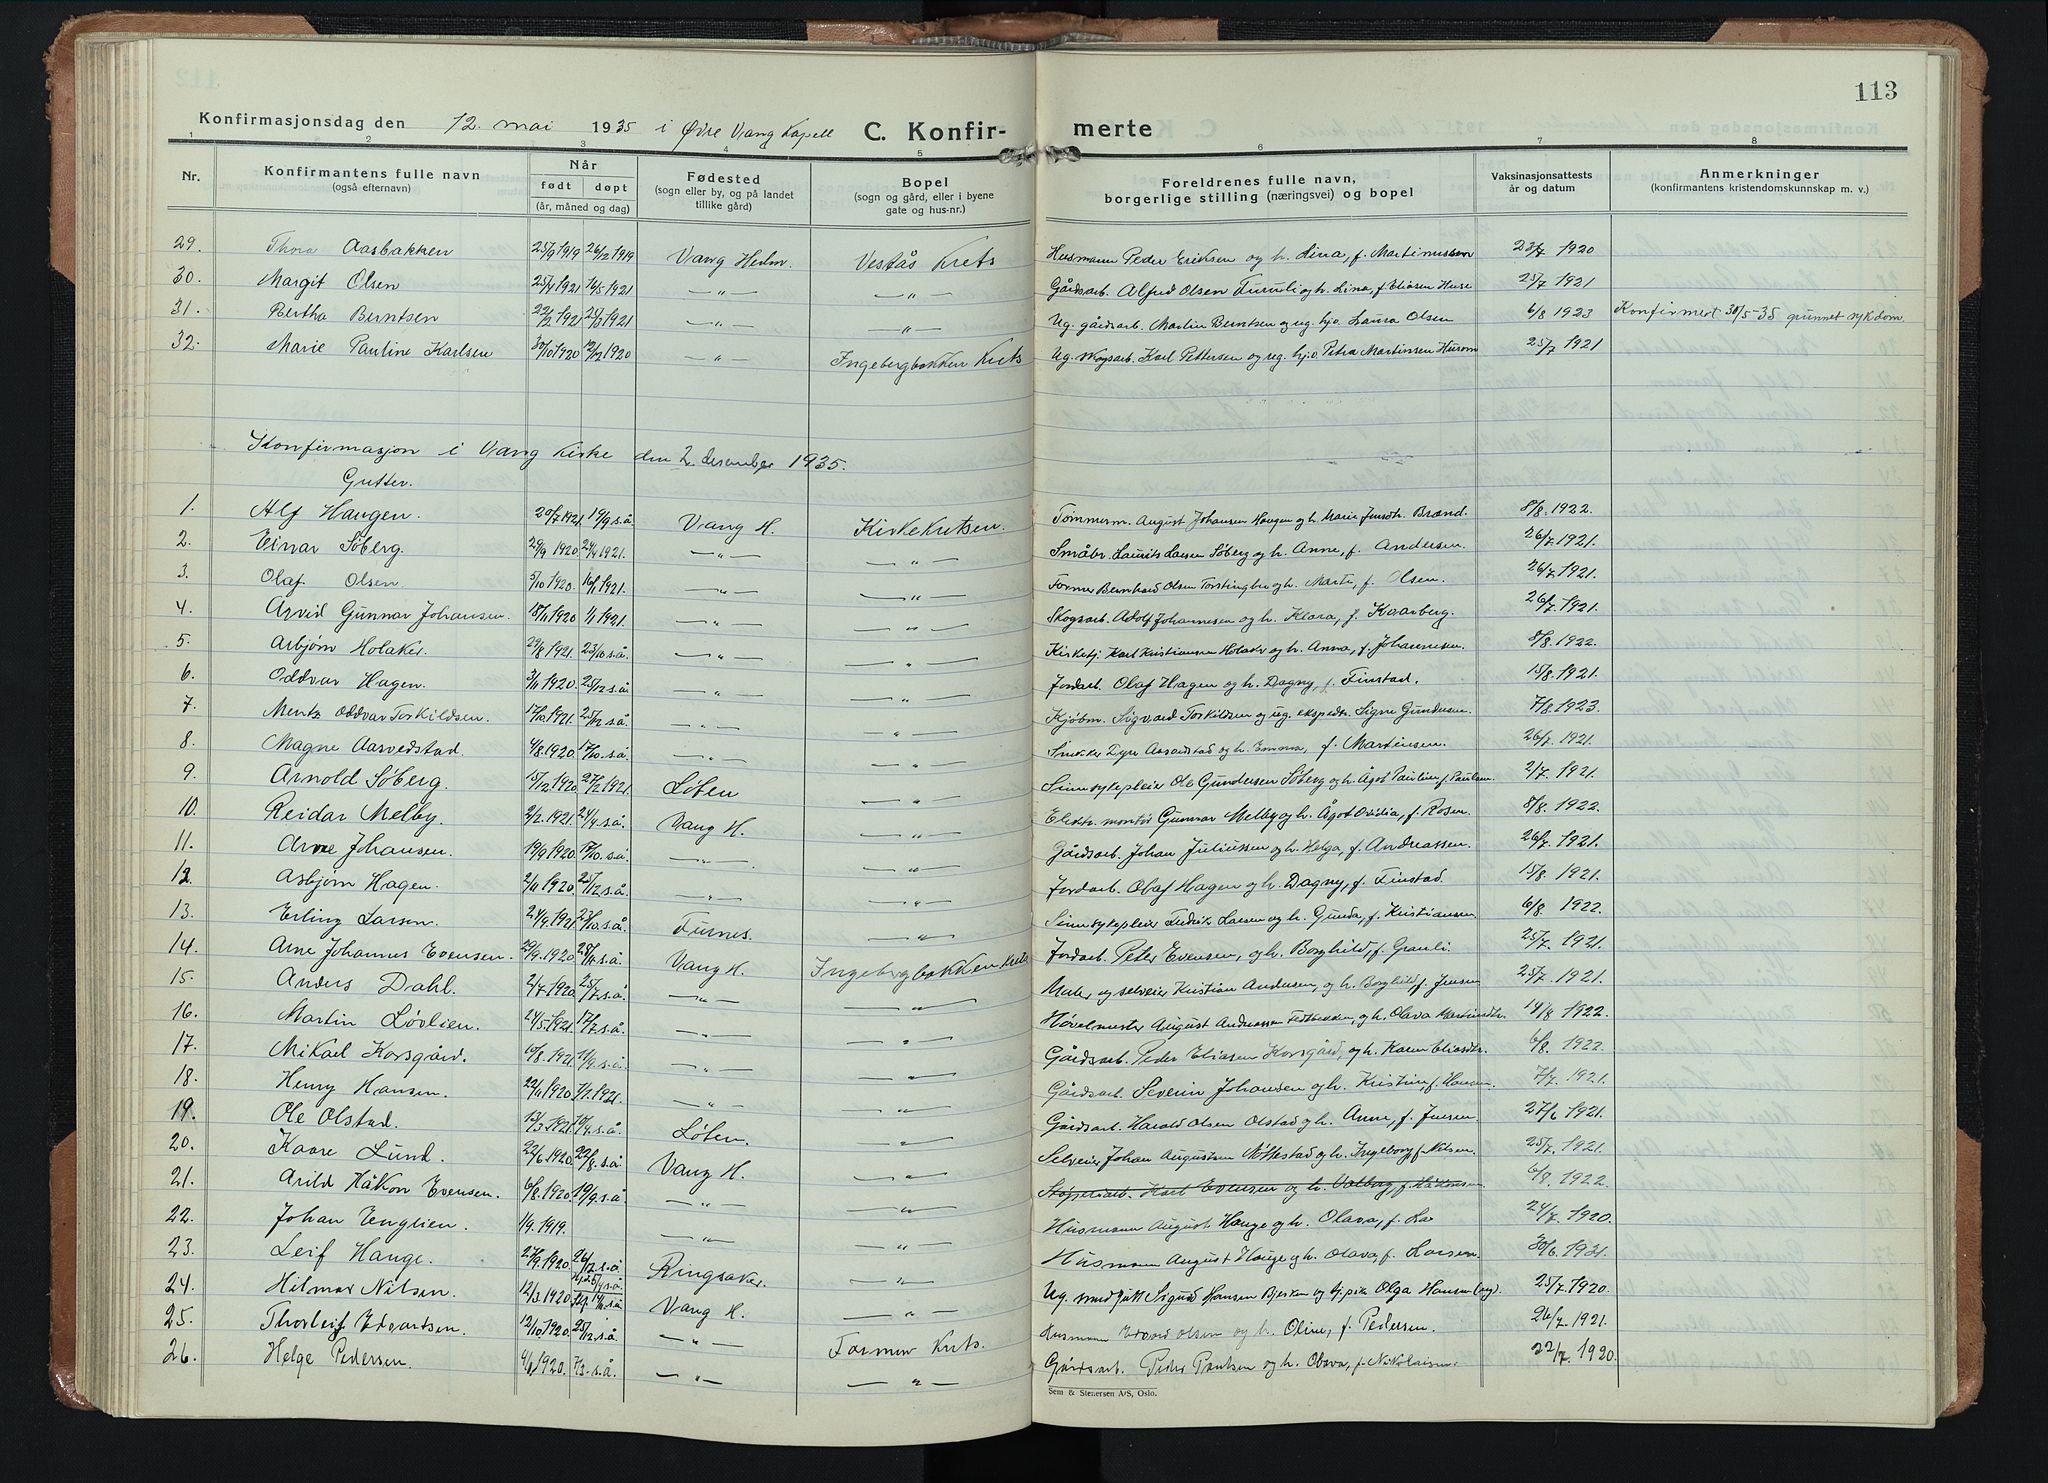 113
Konfirmasjonsdag den 12. mai 1935 i Øvre Vang Kapell C. Konfir- merte
1 2 3 4 5 6 7 8
Nr. Konfirmantens fulle navn (også efternavn) Når født døpt (år, måned og dag) Fødested (sogn eller by, og på landet tillike gård) Bopel (sogn og gård, eller i byene gate og hus-nr.) Foreldrenes fulle navn, borgerlige stilling (næringsvei) og bopel Vaksinasjonsattests år og datum Anmerkninger (konfirmantens kristendomskunnskap m. v.)
29. Thora Aasbakken 25/9 1919 26/12 1919 Vang Hedm. Vestås Krets Husmann Peder Eriksen og h. Lina, f. Martinussen 23/7 1920
30. Margit Olsen 25/4 1921 16/5 1921 —"— —"— Gårdsarb. Alfred Olsen Furuli og h. Lina, f. Eliasen 25/7 1921
31. Bertha Berntsen 22/2 1921 25/3 1921 —"— —"— Ug. gårdsarb. Martin Berntsen og ug. hjo. Laura Olsen 6/8 1923 Konfirmert 30/5-35 grunnet sykdom
32. Marie Pauline Karlsen 30/10 1920 12/12 1920 —"— Ingebergbakken Krets Ug. skogsarb. Karl Pettersen og ug. hjo. Petra Martinsen 25/7 1921
Konfirmasjon i Vang kirke den 2. desember 1935.
Gutter.
1. Alf Haugen. 20/7 1921 19/9 s.å. Vang H. Kirkekretsen. Tømmerm. August Johansen Haugen og h. Marie Jensdtr. Brænd. 8/8. 1922.
2. Einar Søberg. 29/9 1920 24/4 1921. —"— —"— Småbr. Laurits Larsen Søberg og h. Anne, f. Andersen. 26/7. 1921.
3. Olaf Olsen 5/10 1920 16/1 1921. —"— —"— Former Bernhard Olsen og h. Marte, f. Olsen. 26/7. 1921.
4. Arvid Gunnar Johansen. 18/11 1920 1/1 1921. —"— —"— Skogsarb. Adolf Johannesen og h. Klara, f. Kaarberg. 26/7. 1921.
5. Asbjørn Holaker. 29/8 1921. 23/10. s.å. —"— —"— Kirketj. Karl Kristiansen Holaker og h. Anna, f. Johannesen. 8/8. 1922.
6. Oddvar Hagen. 3/11 1920. 25/12 s.å —"— —"— Jordarb. Olaf Hagen og h. Dagny, f. Finstad. 15/8. 1921.
7. Mentz Oddvar Torkildsen. 17/10 1921. 25/12 s.å. —"— —"— Kjøbm. Sigvard Torkildsen og ug. ekspedtr. Signe Gundersen. 7/8. 1923.
8. Magne Aarvedstad. 4/8. 1920. 17/10. s.å. —"— —"— Snekker Dyre Aarvedstad og h. Emma, f. Martinsen. 26/7. 1921.
9. Arnold Søberg. 15/12. 1920. 27/2 1921. Løten —"— Sinnssykepleier Ole Gundersen Søberg og h. Ågot Pauline, f. Paulsen. 2/7. 1921.
10. Reidar Melby. 2/2. 1921. 24/4. s.å. Vang H. —"— Elektr. montør Gunnar Melby og h. Ågot Ovidia, f. Rosen. 8/8. 1922.
11. Arne Johansen. 19/9 1920. 17/10. s.å. —"— —"— Gårdsarb. Johan Juliussen og h. Helga, f. Andreassen. 26/7. 1921.
12. Asbjørn Hagen. 2/11 1920. 25/12. s.å. —"— —"— Jordarb. Olaf Hagen og h. Dagny, f. Finstad. 15/8. 1921.
13. Erling Larsen. 24/9. 1921. 23/10. s.å. Furnes. —"— Sinnssykepleier Fredrik Larsen og h. Gunda, f. Kristiansen 6/8. 1922.
14. Arne Johannes Evensen. 29/9. 1920. 28/11. s.å. Vang H. Ingebergbakken krets Jordarb. Peter Evensen, og h. Borghild, f. Granli. 25/7. 1921.
15. Anders Dahl. 2/7 1920. 25/7. s.å. —"— —"— Maler og selveier Kristian Andersen, og h. Borghild, f. Jensen 25/7. 1921.
16. Martin Løvlien. 24/5. 1921. 17/7. s.å. —"— —"— Høvelmester August Andreassen og h. Olava Martinsdtr. 14/8 1922.
17. Mikael Korsgård. 10/8. 1921. 11/9. s.å. —"— —"— Gårdsarb. Peder Eliasen Korsgård, og h. Karen Eliasdtr. 6/8. 1922.
18. Henry Hansen. 22/11 1920. 7/1. 1921. —"— —"— Gårdsarb. Severin Johansen og h. Kristine, f. Hansen. 7/7. 1921.
19. Ole Olstad. 13/3. 1921. 10/4. s.å. Løten. —"— Gårdsarb. Harald Olsen Olstad og h. Anne, f. Jensen. 27/6 1921.
20. Kaare Lund. 22/6. 1920. 22/8. s.å. Vang H. —"— Selveier Johan Augustsen Nøttestad og h. Ingeborg, f. Nilsen. 25/7. 1921.
21. Arild Håkon Evensen. 6/8. 1920. 19/9. s.å. —"— —"— Støperiarb. Karl Evensen og h. Valborg, f. 6/8. 1922.
22. Johan Englien. 1/9. 1919. —"— —"— Husmann August Hauge og h. Olava, f. La 24/7. 1920.
23. Leif Hauge. 27/9. 1920. 26/12. s.å Ringsaker. —"— Husmann August Hauge og h. Olava, f. Larsen. 30/6. 1921.
24. Hilmar Nilsen. 12/3. 1920. Vang H. —"— Ug. smedgutt Sigurd Hansen og tj.pike Olga Hansen 25/7. 1920.
25. Thorleif Edvartsen. 12/10 1920. 25/12. s.å. —"— Farmen Krets. Husmann Edvard Olsen og h. Oline, f. Pedersen. 26/7. 1921.
26. Helge Pedersen. 4/1 1920. 7/3 s.å. —"— —"— Gårdsarb. Peder Paulsen og h. Olava, f. Nikolaisen. 22/7. 1920.
Sem & Stenersen A/S, Oslo.